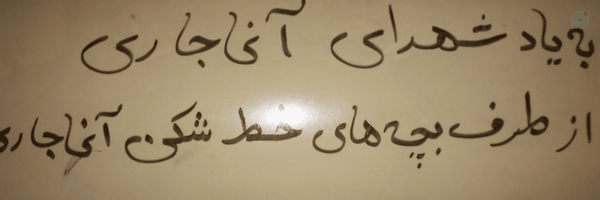 به یاد شهدای آغاجاری
از طرف بچه های خط شکن آغاجاری